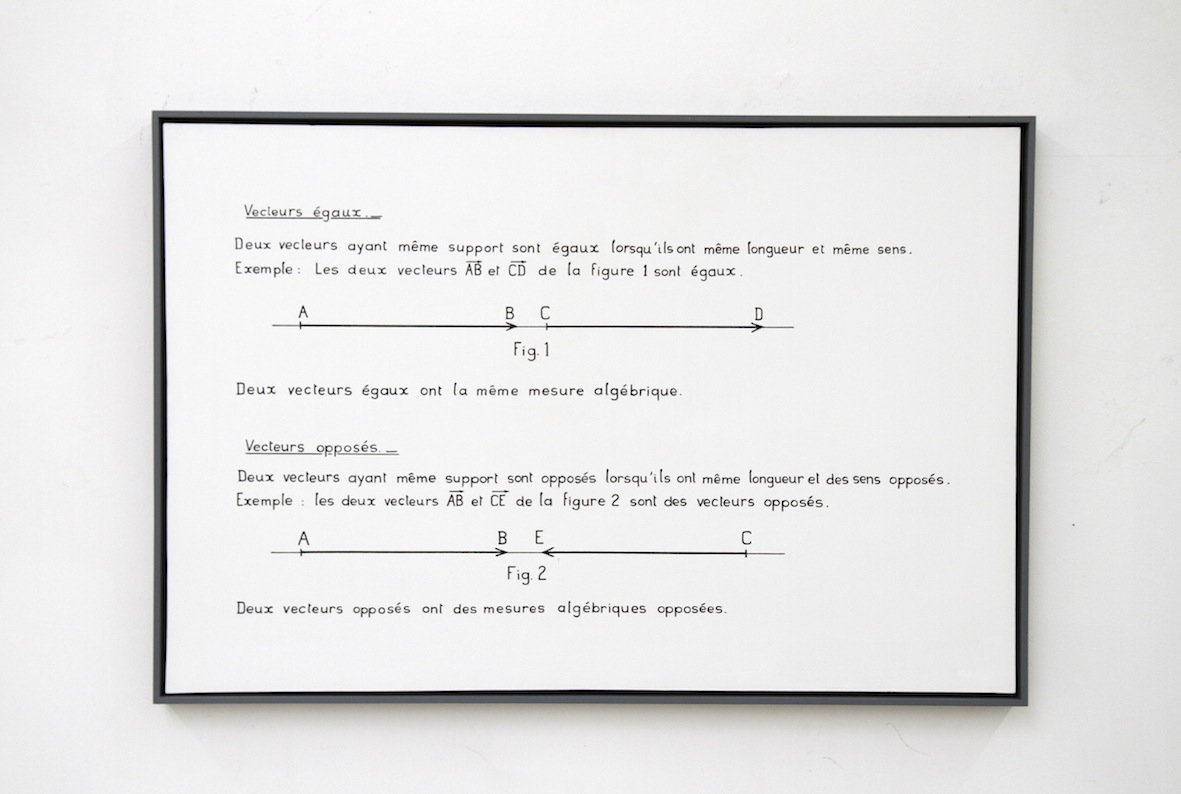 Vecteurs égaux._
Deux vecteurs ayant même support sont égaux lorsqu'ils ont même longueur et même sens.
Exemple : Les deux vecteurs AB et CD de la figure 1 sont égaux.
A B C D
Fig. 1
Deux vecteurs égaux ont la même mesure algébrique.
Vecteurs opposés._
Deux vecteurs ayant même support sont opposés lorsqu'ils ont même longueur et des sens opposés.
Exemple : les deux vecteurs AB et CE de la figure 2 sont des vecteurs opposés.
A B E C
Fig. 2
Deux vecteurs opposés ont des mesures algébriques opposées.